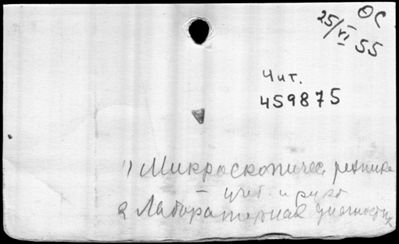 ОС
25/VI 55
Чит.
459875
1) Микроскопичес. техника
учеб. и рук
2 Лабораторная диагностик